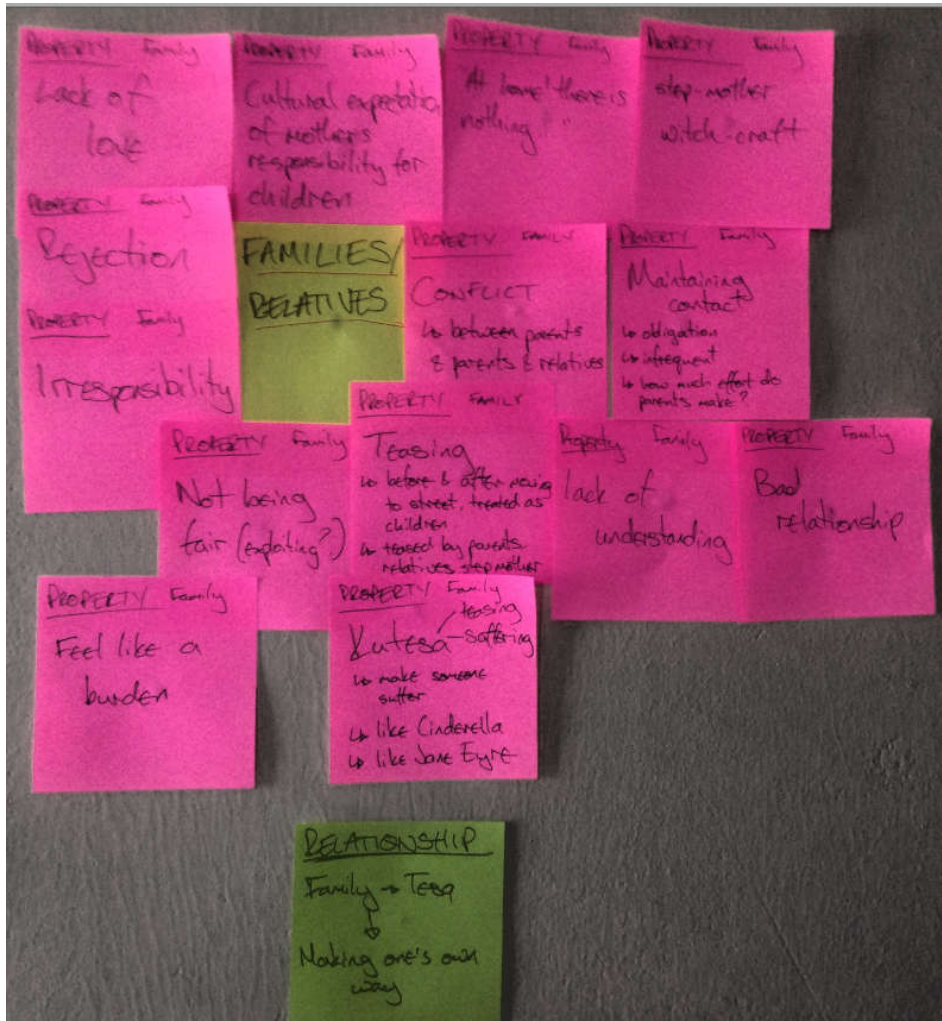 PROPERTY Family
Lack of
love
PROPERTY Family
Cultural expectation
of mother's
responsibility for
children
PROPERTY Family
"At home there is
nothing"
PROPERTY Family
step-mother
witch-craft
PROPERTY Family
Rejection
FAMILIES/
RELATIVES
PROPERTY FAMILY
CONFLICT
↳ between parents
& parents & relatives
PROPERTY Family
Maintaining
contact
↳ obligation
↳ infrequent
↳ how much effort do
parents make?
PROPERTY Family
Irresponsibility
PROPERTY Family
Not being
fair (exploiting?)
PROPERTY FAMILY
Teasing
↳ before & after moving
to street, treated as
children
↳ teased by parents,
relatives, stepmother
Property Family
lack of
understanding
PROPERTY Family
Bad
relationship
PROPERTY Family
Feel like a
burden
PROPERTY Family
Kutesa - teasing
- suffering
↳ make someone
suffer
↳ like Cinderella
↳ like Jane Eyre
RELATIONSHIP
Family → Tesa
↓
Making one's own
way